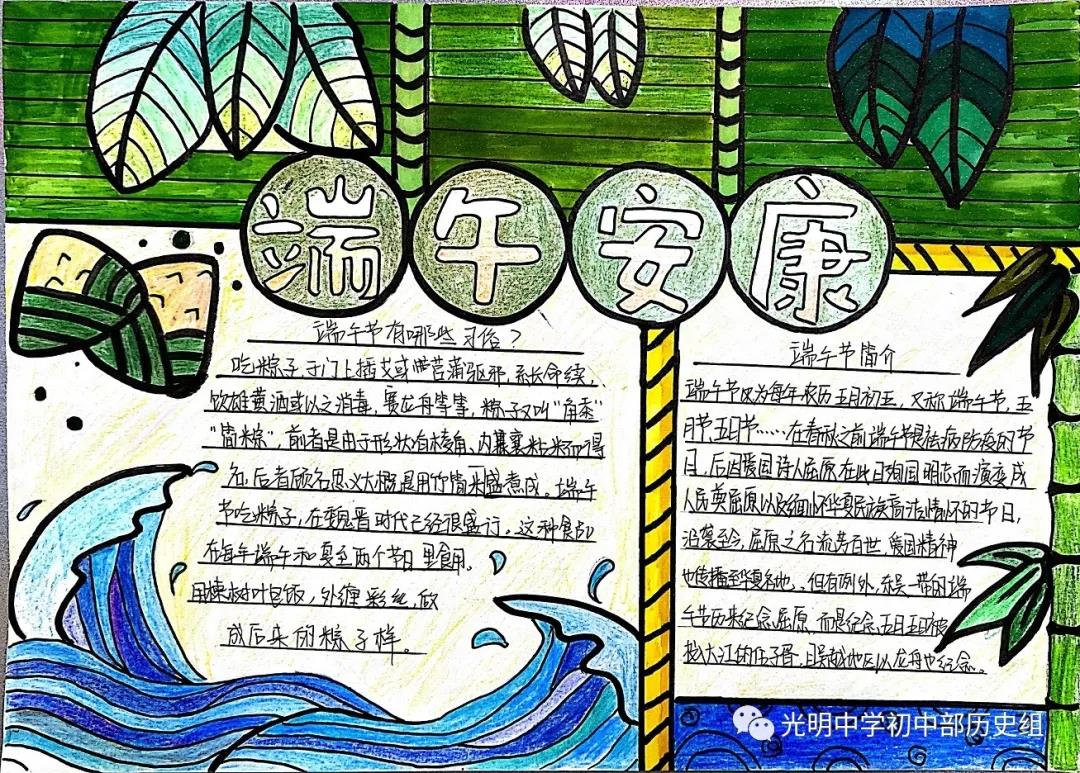 端午安康
端午节有哪些习俗？
吃粽子,于门上插艾或菖蒲驱邪,系长命缕,
饮雄黄酒或以之消毒,赛龙舟等等,粽子又叫“角黍”
“筒粽”,前者是由于形状有棱角、内裹粘米而得
名,后者顾名思义大概是用竹筒米盛煮成。端午
节吃粽子,在魏晋时代已经很盛行。这种食品
在每年端午和夏至两个节日里食用。
用楝树叶包饭,外缠彩丝,做
成后来的粽子样。
端午节简介
端午节仅为每年农历五月初五,又称端午节,五
月节,五日节……在春秋之前端午节是祛病防疫的节
日,后因爱国诗人屈原在此日殉国明志而演变成
人民奠屈原以及缅怀华夏民族高洁情怀的节日,
沿袭至今,屈原之名流芳百世,爱国精神
也传播至华夏各地。但有例外,东吴一带的端
午节历来纪念屈原,而是纪念五日五日被
投大江的伍子胥,且吴越地区以龙舟也纪念。
光明中学初中部历史组